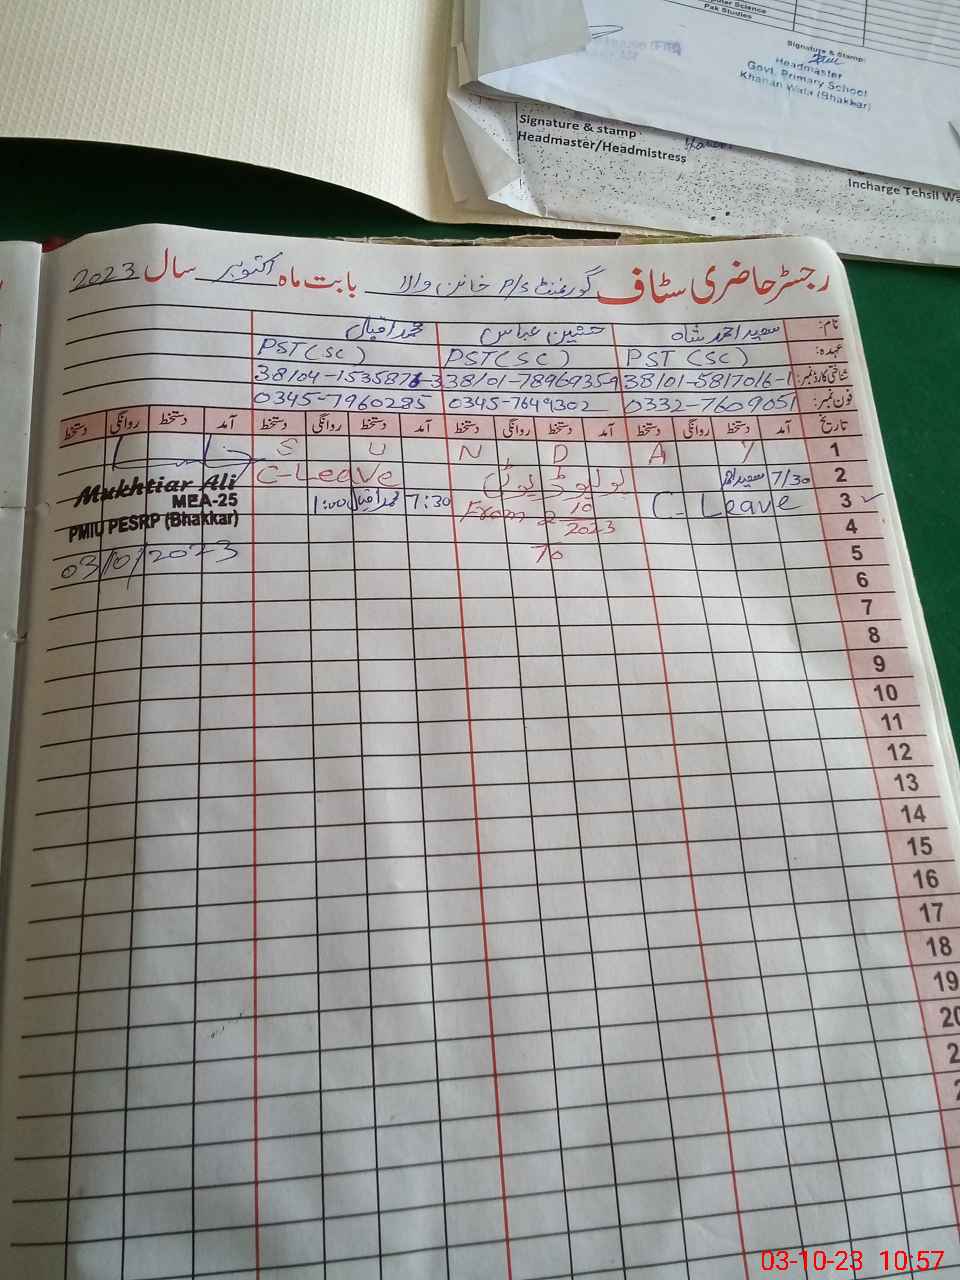 Computer Science
Pak Studies
Signature & Stamp:
Headmaster
Govt. Primary School
Khanan Wala (Bhakkar)
Signature & stamp
Headmaster/Headmistress
Incharge Tehsil
رجسٹر حاضری سٹاف گورنمنٹ P/S خانن والا بابت ماہ اکتوبر سال 2023
نام: سعید احمد شاہ حسنین عباس محمد اقبال
عہدہ: PST (SC) PST (SC) PST (SC)
شناختی کارڈ نمبر: 38101-5817016-1 38101-78969359 38104-1535876-3
فون نمبر: 0332-7609051 0345-7649302 0345-7960285
تاریخ آمد دستخط روانگی دستخط آمد دستخط روانگی دستخط آمد دستخط روانگی دستخط آمد دستخط روانگی دستخط
1 S U N D A Y
2 7/30 سعید احمد پولیو ڈیوٹی C-Leave
3 C-Leave From 2 10 2023 7:30 محمد اقبال 1:00
4
5 To
6
7
8
9
10
11
12
13
14
15
16
17
18
19
20
Mukhtiar Ali
MEA-25
PMIU PESRP (Bhakkar)
03/10/2023
03-10-23 10:57